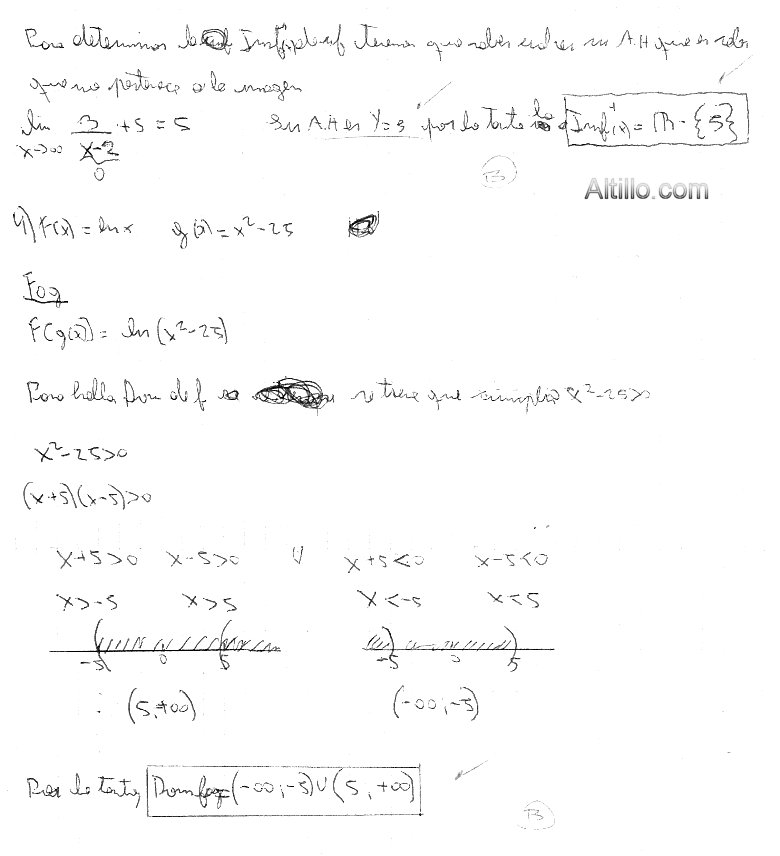 Para determinar la Imf tenemos que saber cual es su A.H que es valor
que no pertenece a la imagen
lim 3/(x-2) +5 = 5 Su A.H es y=5 por lo tanto la Imf⁻¹(x) = R - {5}
x→∞
0
B
Altillo.com
4) F(x) = ln x g(x) = x²-25
Fog
F(g(x)) = ln(x²-25)
Para halla Dom de f se tiene que cumplir x²-25>0
x²-25>0
(x+5)(x-5)>0
x+5>0 x-5>0 ∪ x+5<0 x-5<0
x>-5 x>5 x<-5 x<5
-5 0 5 -5 0 5
∴ (5,+∞) (-∞;-5)
Por lo tanto, Dom fog=(-∞;-5)∪(5,+∞)
B